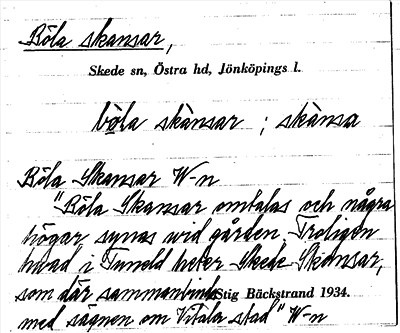 Böla skansar,
Skede sn, Östra hd, Jönköpings l.
bǫla skànsar ; skànsa
Böla Skansar W-n
"Böla Skansar omtalas och några
högar synas wid gården. Troligen
hwad i Tuneld heter Skede Skansar,
som där sammanbinds
Stig Bäckstrand 1934.
med sägnen om Vitala stad" W-n